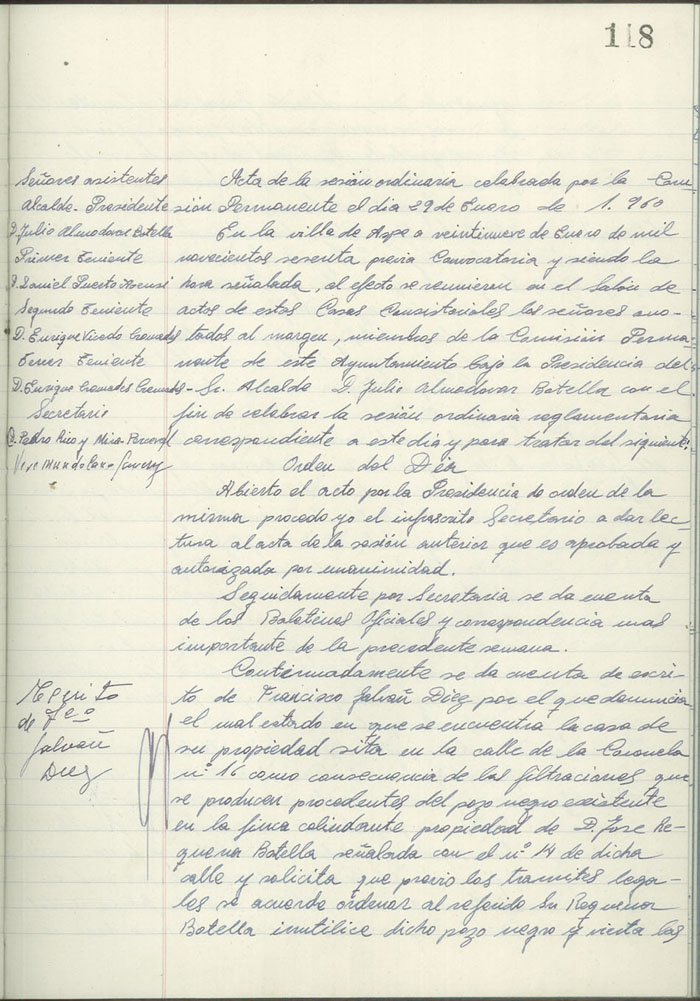 118
Señores asistentes
Alcalde-Presidente
D. Julio Almodovar Botella
Primer Teniente
D. Daniel Puerto Asensi
Segundo Teniente
D. Enrique Vicedo Cremades
Tercer Teniente
D. Enrique Cremades Cremades
Secretario
D. Pedro Rico y Mira-Perceval
Acta de la sesión ordinaria celebrada por la Comi
sión Permanente el dia 29 de Enero de 1.960
En la villa de Aspe a veintinueve de Enero de mil
novecientos sesenta previa Convocatoria y siendo la
hora señalada, al efecto se reunieron en el Salón de
actos de estas Casas Consistoriales los señores ano-
tados al margen, miembros de la Comisión Perma
nente de este Ayuntamiento bajo la Presidencia del
Sr. Alcalde D. Julio Almodovar Botella con el
fin de celebrar la sesión ordinaria reglamentaria
correspondiente a este dia y para tratar del siguiente:
Orden del Dia
Abierto el acto por la Presidencia de orden de la
misma procedo yo el infrascrito Secretario a dar lec-
tura al acta de la sesión anterior que es aprobada y
autorizada por unanimidad.
Seguidamente por Secretaria se da cuenta
de los Boletines Oficiales y correspondencia mas
importante de la precedente semana.
Escrito
de Fco
Galvañ
Diez
Continuadamente se da cuenta de escri-
to de Francisco Galvañ Diez por el que denuncia
el mal estado en que se encuentra la casa de
su propiedad sita en la calle de la Coronela
nº 16 como consecuencia de las filtraciones que
se producen procedentes del pozo negro existente
en la finca colindante propiedad de D. Jose Re-
quena Botella señalada con el nº 14 de dicha
calle y solicita que previo los tramites lega-
les se acuerde ordenar al referido Sr Requena
Botella inutilice dicho pozo negro y vierta las